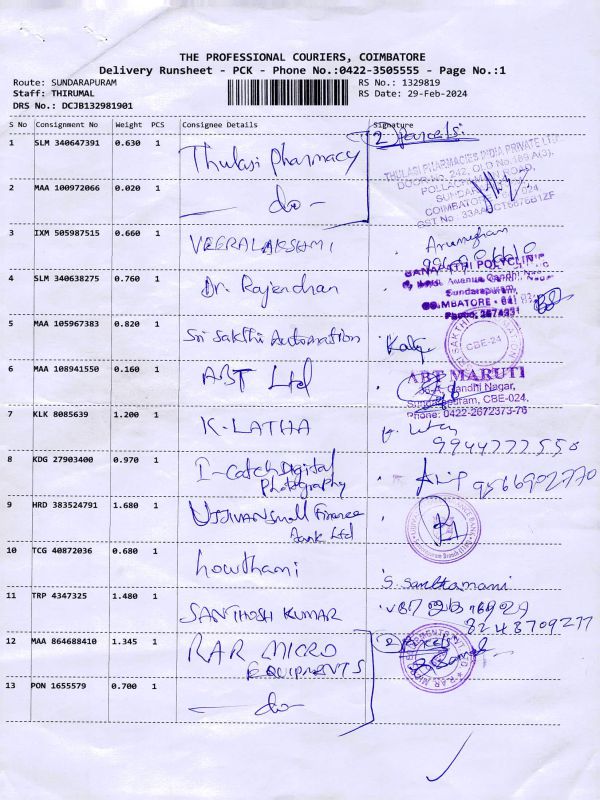 THE PROFESSIONAL COURIERS, COIMBATORE
Delivery Runsheet - PCK - Phone No.:0422-3505555 - Page No.:1
Route: SUNDARAPURAM RS No.: 1329819
Staff: THIRUMAL RS Date: 29-Feb-2024
DRS No.: DCJB132981901
S No Consignment No Weight PCS Consignee Details Signature
2 parcels
1 SLM 340647391 0.630 1 Thulasi Pharmacy
THULASI PHARMACIES INDIA PRIVATE LTD
DOOR NO. 242, OLD No.189 A(3),
POLLACHI MAIN ROAD,
2 MAA 100972066 0.020 1 - do -
3 IXM 505987515 0.660 1 VEERALAKSHMI Arumugham
4 SLM 340638275 0.760 1 Dr. Rajendran
GANAPATHI POLYCLINIC
Sundarapuram,
5 MAA 105967383 0.820 1 Sri Sakthi Automation
CBE-24
6 MAA 108941550 0.160 1 ABT Ltd
ABT MARUTI
Gandhi Nagar,
Sundarapuram, CBE-024.
Phone: 0422-2672373-76
7 KLK 8085639 1.200 1 K-LATHA
9944777550
8 KDG 27903400 0.970 1 I-Catch Digital
Photography
9566902770
9 HRD 383524791 1.680 1 Ujjivan Small Finance
Bank Ltd
10 TCG 40872036 0.680 1 howthami
S. Santhamani
11 TRP 4347325 1.480 1 SANTHOSH KUMAR
8248709277
12 MAA 864688410 1.345 1 RAR MICRO
EQUIPMENTS
2 Parcels
13 PON 1655579 0.700 1 - do -